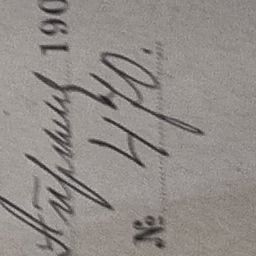 Апрѣля 190
№ 440.